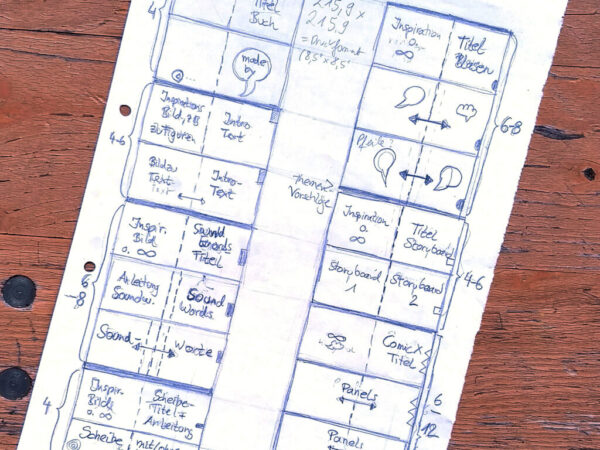 4
Titel
Buch
made
by
215,9 x
215,9
= Druckformat
4-6
Inspirations
Bild, zB
zu Figuren
Intro-
Text
Bild zu
Text
Intro-
Text
Themen
Vorschläge
6
-8
Inspir.
Bild
o. ∞
Sound
Words
Titel
Anleitung
Soundw.
Sound
words
Sound-
worte
4
Inspir-
Bild
o. ∞
Scheibe-
Titel +
Anleitung
Scheibe
Inspiration
o.
∞
Titel
Blasen
6-8
Pfeile?
Inspiration
o.
∞
Titel
Storyboard
4-6
Storyboard
1
Storyboard
2
Comic x
Titel
6
-
12
Panels
Panels